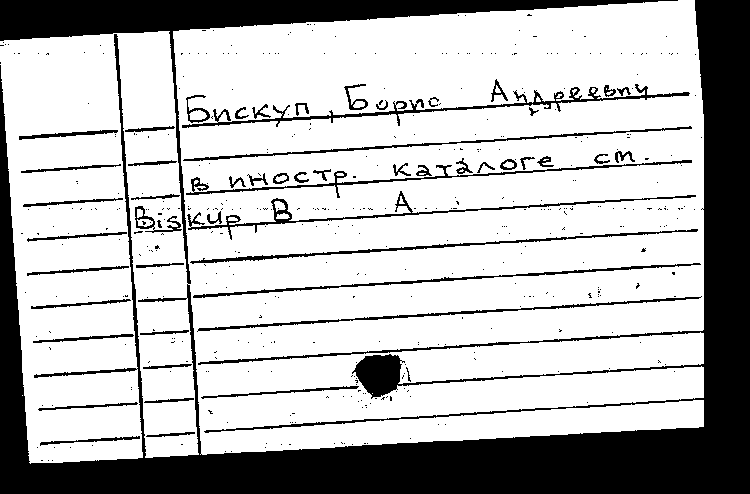 Бискуп, Борис Андреевич
в иностр. каталоге см.
Biskup, B A